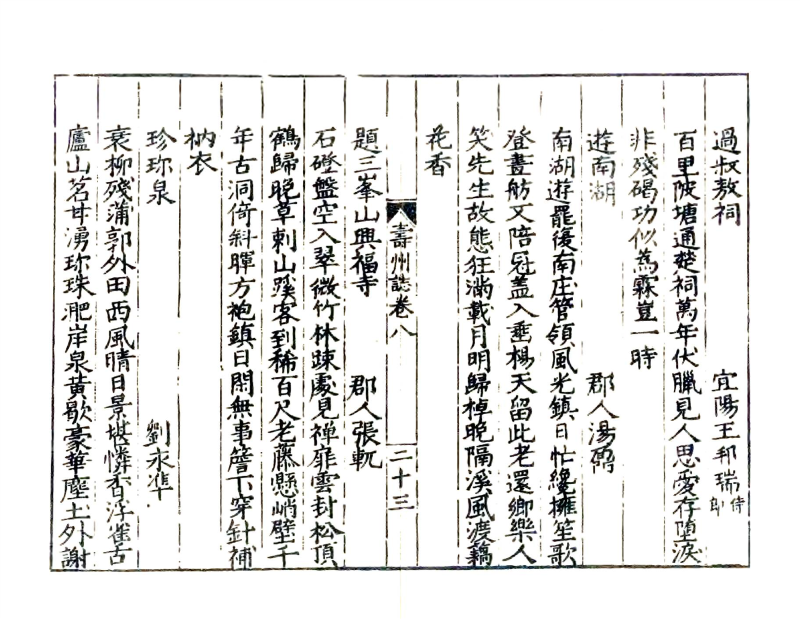 過叔敖祠 宜陽王邦瑞侍郎
百里陂塘通楚祠萬年伏臘見人思愛存墮淚
非殘碣功似為霖豈一時
遊南湖 郡人湯鼐
南湖遊罷後南庄管領風光鎮日忙纔擁笙歌
登畫舫又陪冠蓋入垂楊天留此老還鄉樂人
笑先生故態狂滿載月明歸棹晚隔溪風渡藕
花香
壽州誌卷八 二十三
題三峯山興福寺 郡人張軏
石磴盤空入翠微竹林疎處見禅扉雲封松頂
鶴歸晚草刺山蹊客到稀百尺老藤懸峭壁千
年古洞倚斜暉方袍鎮日閑無事簷下穿針補
衲衣
珍珎泉 劉永準
衰柳殘蒲郭外田西風晴日景堪憐香浮雀古
廬山茗甘湧珎珠淝岸泉黃歇豪華塵土外謝